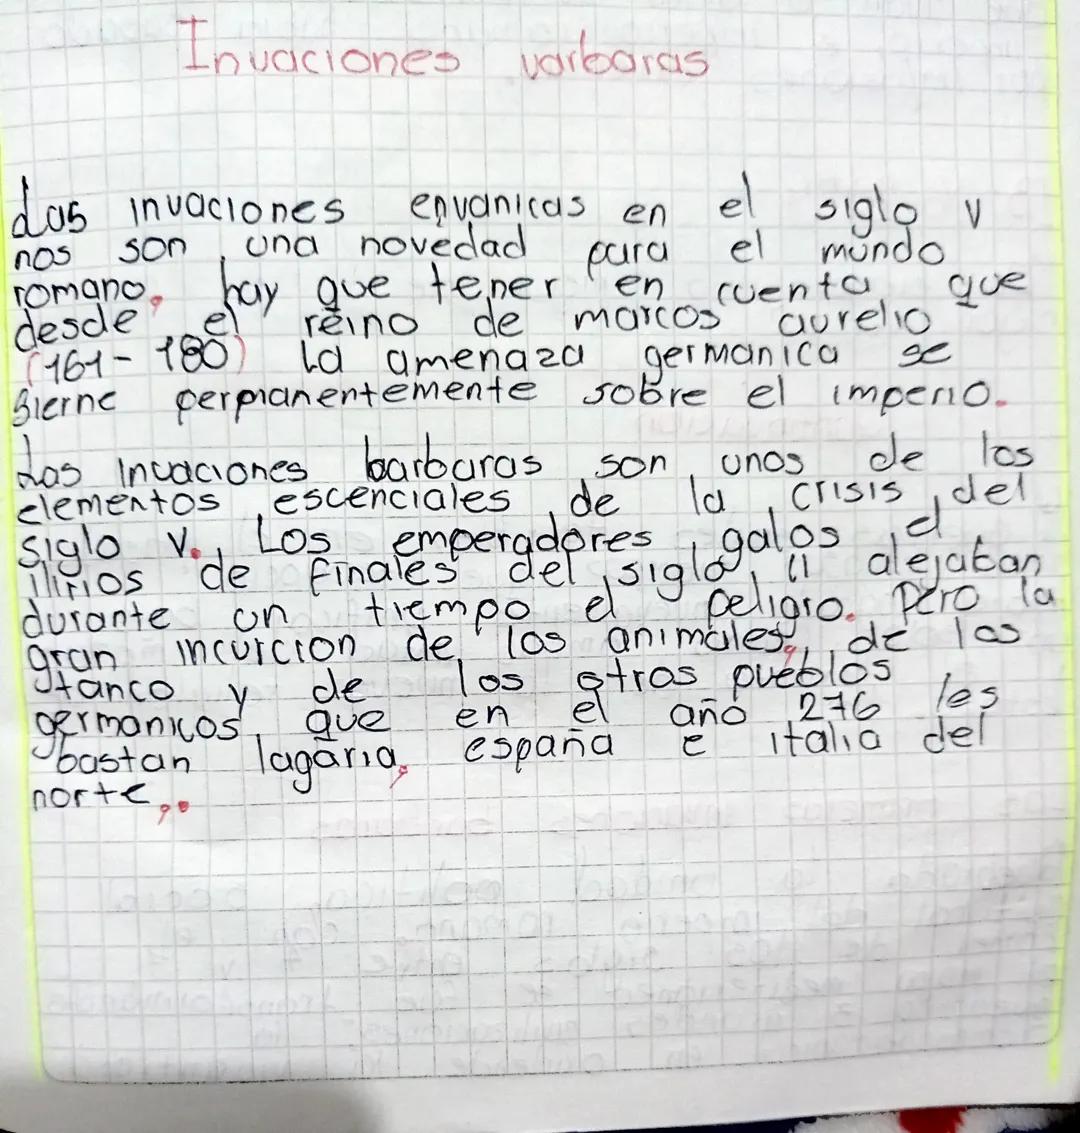 Invaciones varbaras
Las invaciones envanicas en el siglo V
nos son una novedad para el mundo
romano, hay que tener en cuenta que
desde el reino de marcos aurelio
(161-180) La amenaza germanica se
sierne permanentemente sobre el imperio.
Las invaciones barbaras son unos de los
elementos escenciales de la crisis del
siglo V. Los emperadores galos el
ilirios de finales del siglo II alejaban
durante un tiempo el peligro. Pero la
gran incurcion de los animales, de los
tanco y de los otros pueblos
germanicos que en el año 276 les
bastan lagaria, españa e italia del
norte,.